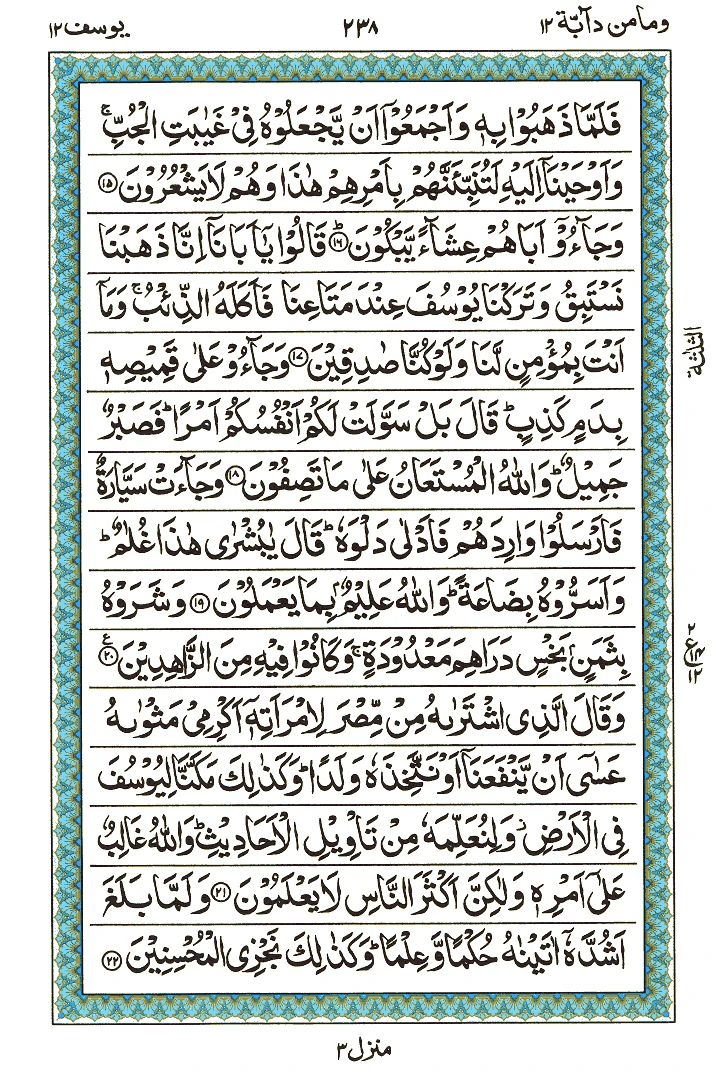 وما من دآبة ١٢
٢٣٨
يوسف ١٢
فَلَمَّا ذَهَبُوْا بِهٖ وَاَجْمَعُوْۤا اَنْ يَّجْعَلُوْهُ فِيْ غَيٰبَتِ الْجُبِّ ۚ
وَاَوْحَيْنَاۤ اِلَيْهِ لَتُنَبِّئَنَّهُمْ بِاَمْرِهِمْ هٰذَا وَهُمْ لَا يَشْعُرُوْنَ ۝۱۵
وَجَآءُوْۤ اَبَاهُمْ عِشَآءً يَّبْكُوْنَ ؕ۝۱۶ قَالُوْا يٰۤاَبَانَاۤ اِنَّا ذَهَبْنَا
نَسْتَبِقُ وَتَرَكْنَا يُوْسُفَ عِنْدَ مَتَاعِنَا فَاَكَلَهُ الذِّئْبُ ۚ وَمَاۤ
اَنْتَ بِمُؤْمِنٍ لَّنَا وَلَوْ كُنَّا صٰدِقِيْنَ ۝۱۷ وَجَآءُوْ عَلٰى قَمِيْصِهٖ
بِدَمٍ كَذِبٍ ؕ قَالَ بَلْ سَوَّلَتْ لَكُمْ اَنْفُسُكُمْ اَمْرًا ؕ فَصَبْرٌ
جَمِيْلٌ ؕ وَاللّٰهُ الْمُسْتَعَانُ عَلٰى مَا تَصِفُوْنَ ۝۱۸ وَجَآءَتْ سَيَّارَةٌ
فَاَرْسَلُوْا وَارِدَهُمْ فَاَدْلٰى دَلْوَهٗ ؕ قَالَ يٰبُشْرٰى هٰذَا غُلٰمٌ ؕ
وَاَسَرُّوْهُ بِضَاعَةً ؕ وَاللّٰهُ عَلِيْمٌۢ بِمَا يَعْمَلُوْنَ ۝۱۹ وَشَرَوْهُ
بِثَمَنٍۭ بَخْسٍ دَرَاهِمَ مَعْدُوْدَةٍ ۚ وَكَانُوْا فِيْهِ مِنَ الزَّاهِدِيْنَ ۝۲۰
وَقَالَ الَّذِى اشْتَرٰىهُ مِنْ مِّصْرَ لِامْرَاَتِهٖۤ اَكْرِمِيْ مَثْوٰىهُ
عَسٰۤى اَنْ يَّنْفَعَنَاۤ اَوْ نَتَّخِذَهٗ وَلَدًا ؕ وَكَذٰلِكَ مَكَّنَّا لِيُوْسُفَ
فِى الْاَرْضِ ؗ وَلِنُعَلِّمَهٗ مِنْ تَاْوِيْلِ الْاَحَادِيْثِ ؕ وَاللّٰهُ غَالِبٌ
عَلٰۤى اَمْرِهٖ وَلٰكِنَّ اَكْثَرَ النَّاسِ لَا يَعْلَمُوْنَ ۝۲۱ وَلَمَّا بَلَغَ
اَشُدَّهٗۤ اٰتَيْنٰهُ حُكْمًا وَّعِلْمًا ؕ وَكَذٰلِكَ نَجْزِى الْمُحْسِنِيْنَ ۝۲۲
الثلثة
٢
ع
١٤
١٢
منزل ٣